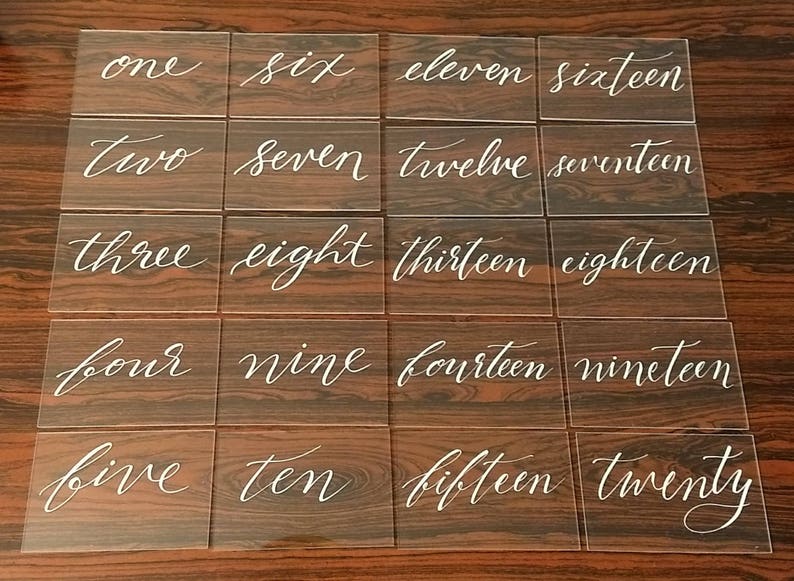 one
six
eleven
sixteen
two
seven
twelve
seventeen
three
eight
thirteen
eighteen
four
nine
fourteen
nineteen
five
ten
fifteen
twenty